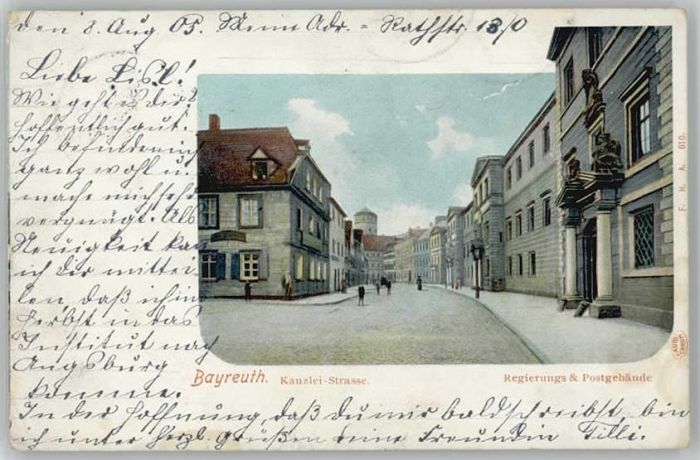 den 8. Aug 05. Meine Adr. = Rathstr. 13/0
Liebe Lisl!
Wie geht es dir?
Hoffentlich gut.
Ich befinde mich
ganz wohl u.
mache mich sehr
vergnügt. Als
Neuigkeit kan
ich dir mittei
len, daß ich im
Herbst in das
Institut nach
Augsburg
komme.
In der Hoffnung, daß du mir bald schreibst, bin
ich unter herzl. Grüßen deine Freundin Tilli.
Bayreuth. Kanzlei-Strasse.
Regierungs & Postgebäude
F. H. A. 610.